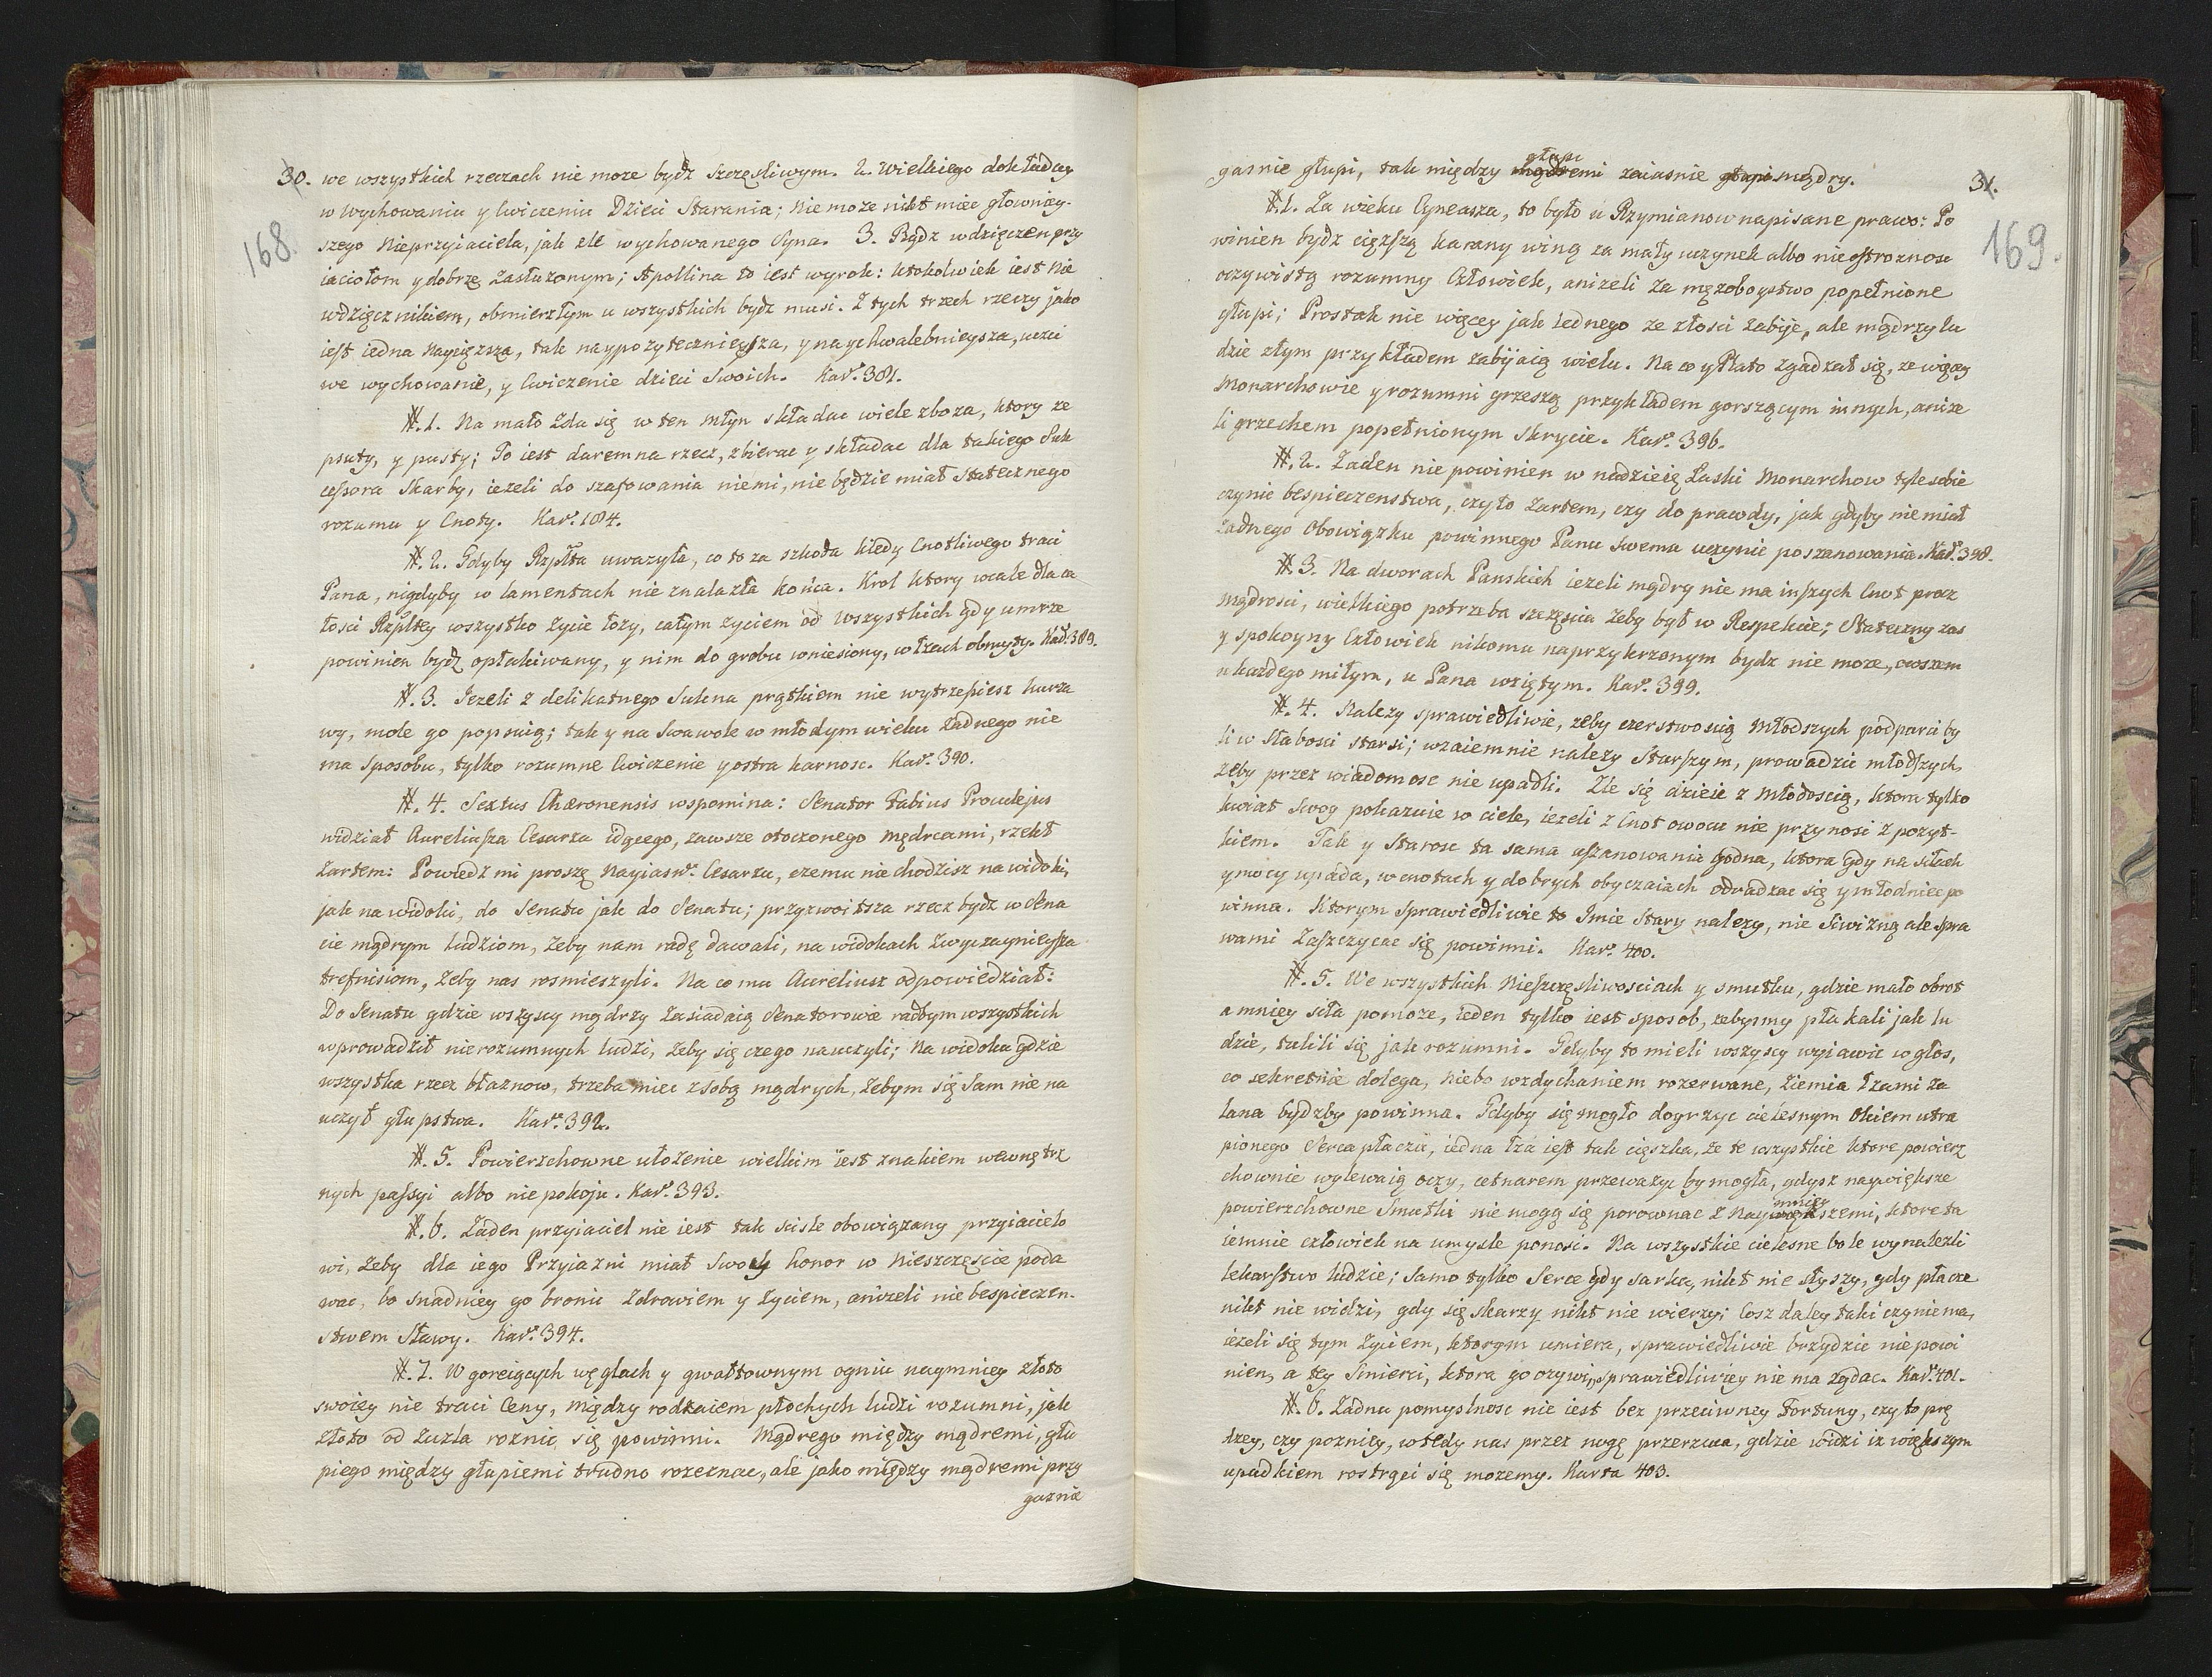 30. we wszystkich rzeczach nie moze bydz szczęsliwym. 2. Wielkiego dokładaę
w Wychowaniu y Cwiczeniu Dzieci Starania; Nie moze nikt miec głowney-
szego Nieprzyiaciela, jak zle wychowanego Syna. 3. Bądz wdzięczen przy
iaciołom y dobrze zasłuzonym; Apollina to iest wyrok: ktokolwiek iest Nie
wdzięcznikiem, obmierzłym u wszystkich bydz musi. Z tych trzech rzeczy jako
iest iedna naycięzsza, tak naypozytecznieysza, y naychwalebnieysza, ucz
we wychowanie, y Cwiczenie dzieci Swoich. Kar: 381.
#.1. Na mało zda się w ten młyn składac wiele zboza, ktory ze
psuty, y pusty; To iest daremna rzecz, zbierac y składac dla takiego Suk
cessora Skarby, iezeli do szafowania niemi, nie będzie miał Statecznego
rozumu y Cnoty. Kar: 184.
#.2. Gdyby Rzplta uwazyła, co to za szkoda kiedy Cnotliwego traci
Pana, nigdyby w lamentach nie znalazła końca. Krol ktory wcale dla ca
łosci Rzpltey wszystko zycie łozy, całym zyciem od wszystkich gdy umrze
powinien bydz opłakiwany, y nim do grobu wniesiony, w łzach obmyty. Kar: 389.
#.3. Iezeli z delikatnego Sukna prątkiem nie wytrzepiesz kurza
wy, mole go popsuią; tak y na Swawole w młodym wieku zadnego nie
ma Sposobu, tylko rozumne Cwiczenie y ostra karnosc. Kar: 390.
#.4. Sextus Chæronensis wspomina: Senator Fabius Proculejus
widział Aureliusza Cesarza idącego, zawsze otoczonego Mędrcami, rzekł
zartem: Powiedz mi proszę Nayiasn: Cesarzu, czemu nie chodzisz na widoki,
jak na widoki, do Senatu jak do Senatu; przyzwoitsza rzecz bydz w Sena
cie mądrym ludziom, zeby nam radę dawali, na widokach zwyczaynieysza
trefnisiom, zeby nas rosmieszyli. Na co mu Aureliusz odpowiedział:
Do Senatu gdzie wszyscy mądrzy zasiadaią Senatorowie radbym wszystkich
wprowadził nierozumnych ludzi, zeby się czego nauczyli; na widoku gdzie
wszystka rzecz błaznow, trzeba miec z sobą mądrych, zebym się Sam nie na
uczył głupstwa. Kar: 392.
#.5. Powierzchowne ułozenie wielkim iest znakiem wewnętrz
nych passyi albo niepokoju. Kar: 393.
#.6. Zaden przyiaciel nie iest tak scisle obowiązany przyiacielo
wi, zeby dla iego Przyiazni miał Swoy honor w Nieszczęscie poda
wac, bo snadniey go bronic zdrowiem y zyciem, anizeli niebespieczen-
stwem Sławy. Kar: 394.
#.7. W goreiących węglach y gwałtownym ogniu naymniey złoto
swoiey nie traci Ceny, między rodzaiem płochych ludzi rozumni, jak
złoto od zuzla roznic się powinni. Mądrego między mądremi, głu
piego między głupiemi trudno rozeznac, ale jako między mądremi przy
gasnie
168.
gasnie głupi, tak między mądremi głupi zaiasnie głupi mądry.
31.
169.
#.1. Za wieku Cyneasza, to było u Rzymianow napisane prawo: Po
winien bydz cięzszą karany winą za mały uczynek albo nieostroznosc
oczywistą rozumny Człowiek, anizeli za męzoboystwo popełnione
głupi; Prostak nie więcey jak iednego ze złosci zabije, ale mądrzy lu
dzie złym przykładem zabijaią wielu. Na co y Plato zgadzał się, ze więcey
Monarchowie y rozumni grzeszą przykładem gorszącym innych, anize
li grzechem popełnionym skrycie. Kar: 396.
#.2. Zaden nie powinien w nadzieię Łaski Monarchow tyle sobie
czynic bespieczenstwa, czy to zartem, czy do prawdy, jak gdyby nie miał
zadnego Obowiązku powinnego Panu swemu uczynic poszanowania. Kar: 398.
#.3. Na dworach Panskich iezeli mądry nie ma inszych Cnot procz
mądrosci, wielkiego potrzeba szczęscia zeby był w Respekcie; Stateczny zas
y spokoyny Człowiek nikomu naprzykrzonym bydz nie moze, owszem
u kazdego miłym, u Pana wziętym. Kar: 399.
#.4. Nalezy sprawiedliwie, zeby czerstwoscią Młodszych podparci by
li w słabosci starsi; wzaiemnie nalezy Starszym, prowadzic młodszych,
zeby przez wiadomosc nie upadli. Zle się dzieie z Młodoscią, ktora tylko
kwiat swoy pokazuie w ciele, iezeli z Cnot owocu nie przynosi z pozyt-
kiem. Tak y Starosc ta sama uszanowania godna, ktora gdy na siłach
y mocy upada, w cnotach y dobrych obyczaiach odradzac się y młodniec po
winna. Ktorym sprawiedliwie to Imie Stary nalezy, nie Siwizną ale spra
wami zaszczycac się powinni. Kar: 400.
#.5. We wszystkich Nieszczęsliwosciach y smutku, gdzie mało obrot
a mniey siła pomoze, ieden tylko iest sposob, zebysmy płakali jak lu
dzie, tulili się jak rozumni. Gdyby to mieli wszyscy wyiawic w głos,
co sekretnie dolega, Niebo wzdychaniem rozerwane, ziemia łzami za
lana bydzby powinna. Gdyby się mogło doyrzyc cielesnym Okiem utra
pionego Serca płaczu, iedna łza iest tak cięszka, ze te wszystkie ktore powierz
chownie wylewaią oczy, cetnarem przewazyc by mogła, gdysz naywiększe
powierzchowne Smutki nie mogą się porownac z Naywięk mniey szemi, ktore ta
iemnie człowiek na umysle ponosi. Na wszystkie cielesne bole wynalezli
lekarstwo ludzie; samo tylko Serce gdy sarka, nikt nie słyszy, gdy płacze
nikt nie widzi, gdy się skarzy nikt nie wierzy; Cosz daley taki czynic ma,
iezeli się tym zyciem, ktorym umiera, sprawiedliwie brzydzic nie powi
nien, a tey Smierci, ktora go ozywi, sprawiedliwiey nie ma ządac. Kar: 401.
#.6. Zadna pomyslnosc nie iest bez przeciwney Fortuny, czy to prę
dzey, czy pozniey, wtedy nas przez nogę przerzuca, gdzie widzi iz większym
upadkiem rostrąci się mozemy. Karta 403.